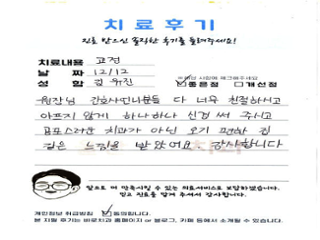 치료후기
진료 받으신 솔직한 후기를 들려주세요!
치료내용 교정
날 짜 12/12
성 함 김유진
※해당 사항에 체크해주세요
☑좋은점 □개선점
원장님 간호사언니분들 다 너무 친절하시고
아프지 않게 하나하나 신경써 주시고
공포스러운 치과가 아닌 오기 편한 집
같은 느낌을 받았어요. 감사합니다
앞으로 더 만족시킬 수 있는 의료서비스로 보답하겠습니다.
믿고 진료를 맡겨 주셔서 감사합니다.
개인정보 취급방침 ☑동의합니다.
본 지원 후기는 바로치과 홈페이지 or 블로그, 카페 등에서 소개될 수 있습니다.